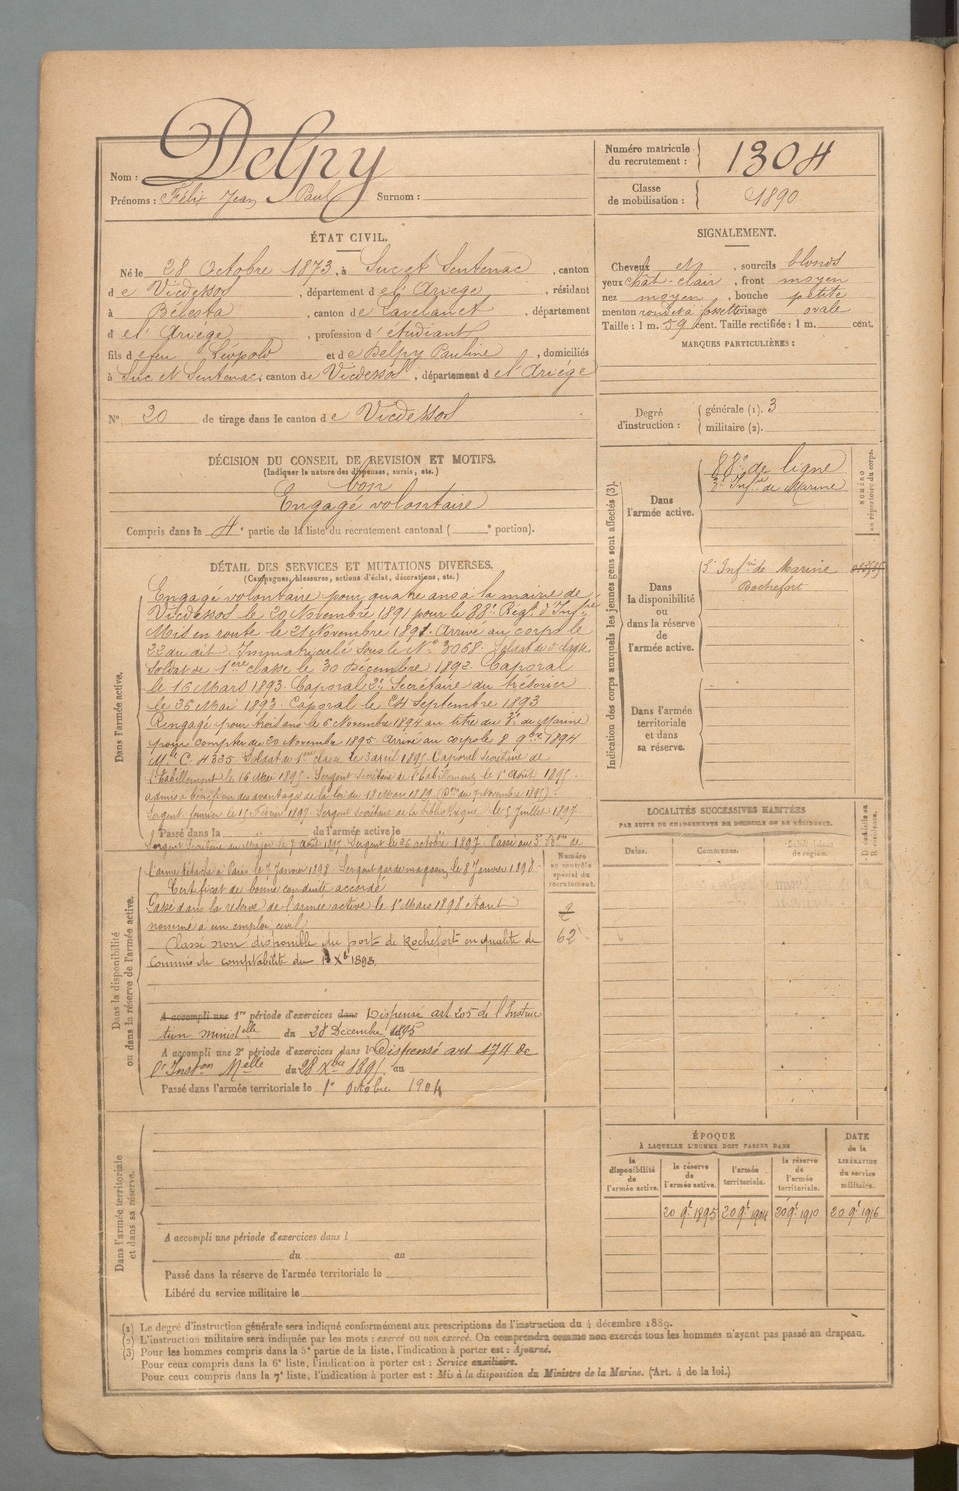 Nom : Delpy
Prénoms : Félix Jean Paul Surnom :
Numéro matricule du recrutement : 1304
Classe de mobilisation : 1890
ÉTAT CIVIL.
Né le 28 Octobre 1873, à Suc et Sentenac, canton
de Vicdessos, département de l'Ariège, résidant
à Bélesta, canton de Lavelanet, département
de l'Ariège, profession d'étudiant
fils de feu Léopold et de Delpy Pauline, domiciliés
à Suc et Sentenac, canton de Vicdessos, département de l'Ariège
N° 20 de tirage dans le canton de Vicdessos
SIGNALEMENT.
Cheveux et, sourcils blonds
yeux chât-clair, front moyen
nez moyen, bouche petite
menton rond et à fossette visage ovale
Taille : 1 m. 59 cent. Taille rectifiée : 1 m. cent.
MARQUES PARTICULIÈRES :
Degré d'instruction : générale (1). 3
militaire (2).
DÉCISION DU CONSEIL DE REVISION ET MOTIFS.
(Indiquer la nature des dispenses, sursis, etc.)
bon
Engagé volontaire
Compris dans la 4e partie de la liste du recrutement cantonal ( e portion).
DÉTAIL DES SERVICES ET MUTATIONS DIVERSES.
(Campagnes, blessures, actions d'éclat, décorations, etc.)
Dans l'armée active.
Engagé volontaire pour quatre ans à la mairie de
Vicdessos le 20 Novembre 1891 pour le 88e Régt d'Infrie
Mis en route le 21 Novembre 1891. Arrivé au corps le
22 du dit Immatriculé sous le No 3068. Soldat de 2e classe
Soldat de 1ère classe le 30 Décembre 1892. Caporal
le 16 Mars 1893. Caporal 2e Secrétaire du trésorier
le 26 Mai 1893. Caporal le 24 Septembre 1893
Rengagé pour trois ans le 6 Novembre 1894 au titre du 3e de Marine
pour compter du 20 Novembre 1895. Arrivé au corps le 8 9bre 1894
Mle C. 4335. Soldat de 1ère classe le 3 avril 1895. Caporal Secrétaire de
l'habillement le 16 Mai 1895. Sergent Secrétaire de l'habillement le 1er Août 1895.
admis à bénéficier des avantages de la loi du 18 Mars 1889 (Don du 7 Novembre 1895).
Sergent fourrier le 15 Février 1897. Sergent secrétaire de la bibliothèque le 5 Juillet 1897
Passé dans la de l'armée active le
Sergent Secrétaire du Major le 7 août 1897. Sergent le 26 octobre 1897. Passé au 3e de
Dans la disponibilité ou dans la réserve de l'armée active.
l'arme détaché à Paris le 7 Janvier 1898 Sergent garde magasin le 8 Janvier 1898
Certificat de bonne conduite accordé
Passé dans la réserve de l'armée active le 1er Mars 1898 étant
nommé à un emploi civil
Classé non disponible du port de Rochefort en qualité de
commis de comptabilité du Xbre 1898.
Numéro au contrôle spécial du recrutement.
62
A accompli une 1re période d'exercices dans Dispensé art. 205 de l'Instruc-
tion ministelle du 28 Décembre 1895
A accompli une 2e période d'exercices dans l Dispensé art 174 de
l'Inston Melle du 28 Xbre 1895 au
Passé dans l'armée territoriale le 1er Octobre 1904
Dans l'armée territoriale et dans sa réserve.
A accompli une période d'exercices dans l
du au
Passé dans la réserve de l'armée territoriale le
Libéré du service militaire le
Indication des corps auxquels les jeunes gens sont affectés (3).
NUMÉRO au répertoire du corps.
Dans l'armée active.
88e de ligne
3e Infie de Marine
Dans la disponibilité ou dans la réserve de l'armée active.
3e Infie de Marine
Rochefort
Dans l'armée territoriale et dans sa réserve.
LOCALITÉS SUCCESSIVES HABITÉES
PAR SUITE DE CHANGEMENTS DE DOMICILE OU DE RÉSIDENCE.
Dates. Communes. Subdivisions de région. D. domicile ou R. résidence.
ÉPOQUE
À LAQUELLE L'HOMME DOIT PASSER DANS
DATE de la LIBÉRATION du service militaire.
la disponibilité de l'armée active. la réserve de l'armée active. l'armée territoriale. la réserve de l'armée territoriale.
20 9e 1895 20 9e 1904 20 9e 1910 20 9e 1916
(1) Le degré d'instruction générale sera indiqué conformément aux prescriptions de l'instruction du 4 décembre 1889.
(2) L'instruction militaire sera indiquée par les mots : exercé ou non exercé. On comprendra comme non exercés tous les hommes n'ayant pas passé au drapeau.
(3) Pour les hommes compris dans la 5e partie de la liste, l'indication à porter est : Ajourné.
Pour ceux compris dans la 6e liste, l'indication à porter est : Service auxiliaire.
Pour ceux compris dans la 7e liste, l'indication à porter est : Mis à la disposition du Ministre de la Marine. (Art. 4 de la loi.)